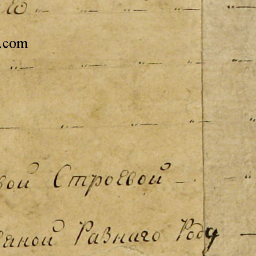 .com
вой Строевой
ѧной Разнаго Роду